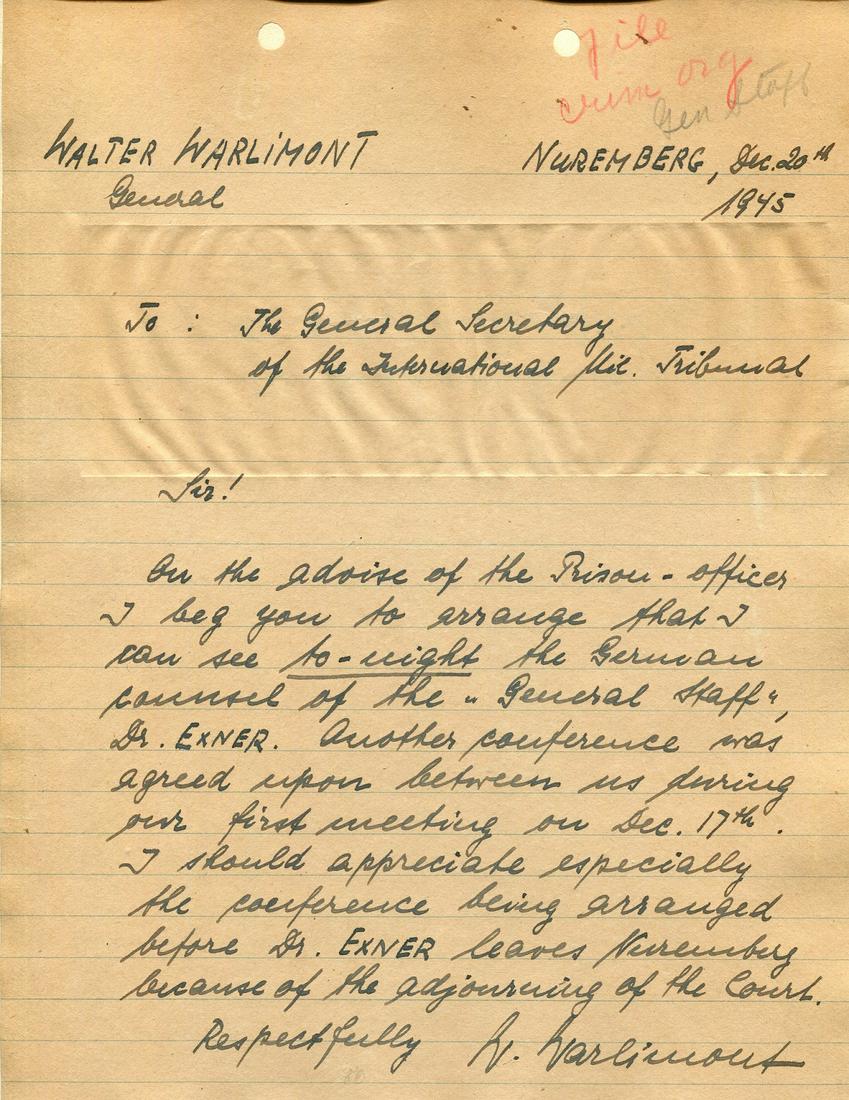 file
crim org
Gen Staff
WALTER WARLIMONT NUREMBERG, Dec. 20th
General 1945
To : The General Secretary
of the International Mil. Tribunal
Sir!
On the advise of the Prison-officer
I beg you to arrange that I
can see to-night the German
counsel of the "General Staff",
Dr. EXNER. Another conference was
agreed upon between us during
our first meeting on Dec. 17th.
I should appreciate especially
the conference being arranged
before Dr. EXNER leaves Nuremberg
because of the adjourning of the Court.
Respectfully W. Warlimont